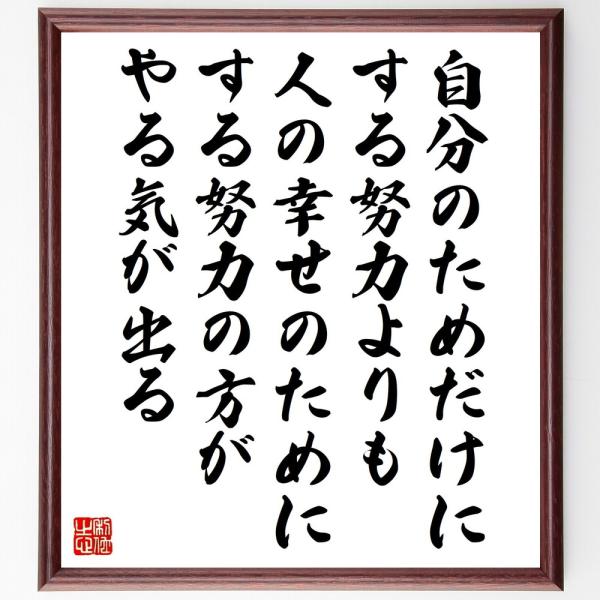 自分のためだけに
する努力よりも
人の幸せのために
する努力の方が
やる気が出る